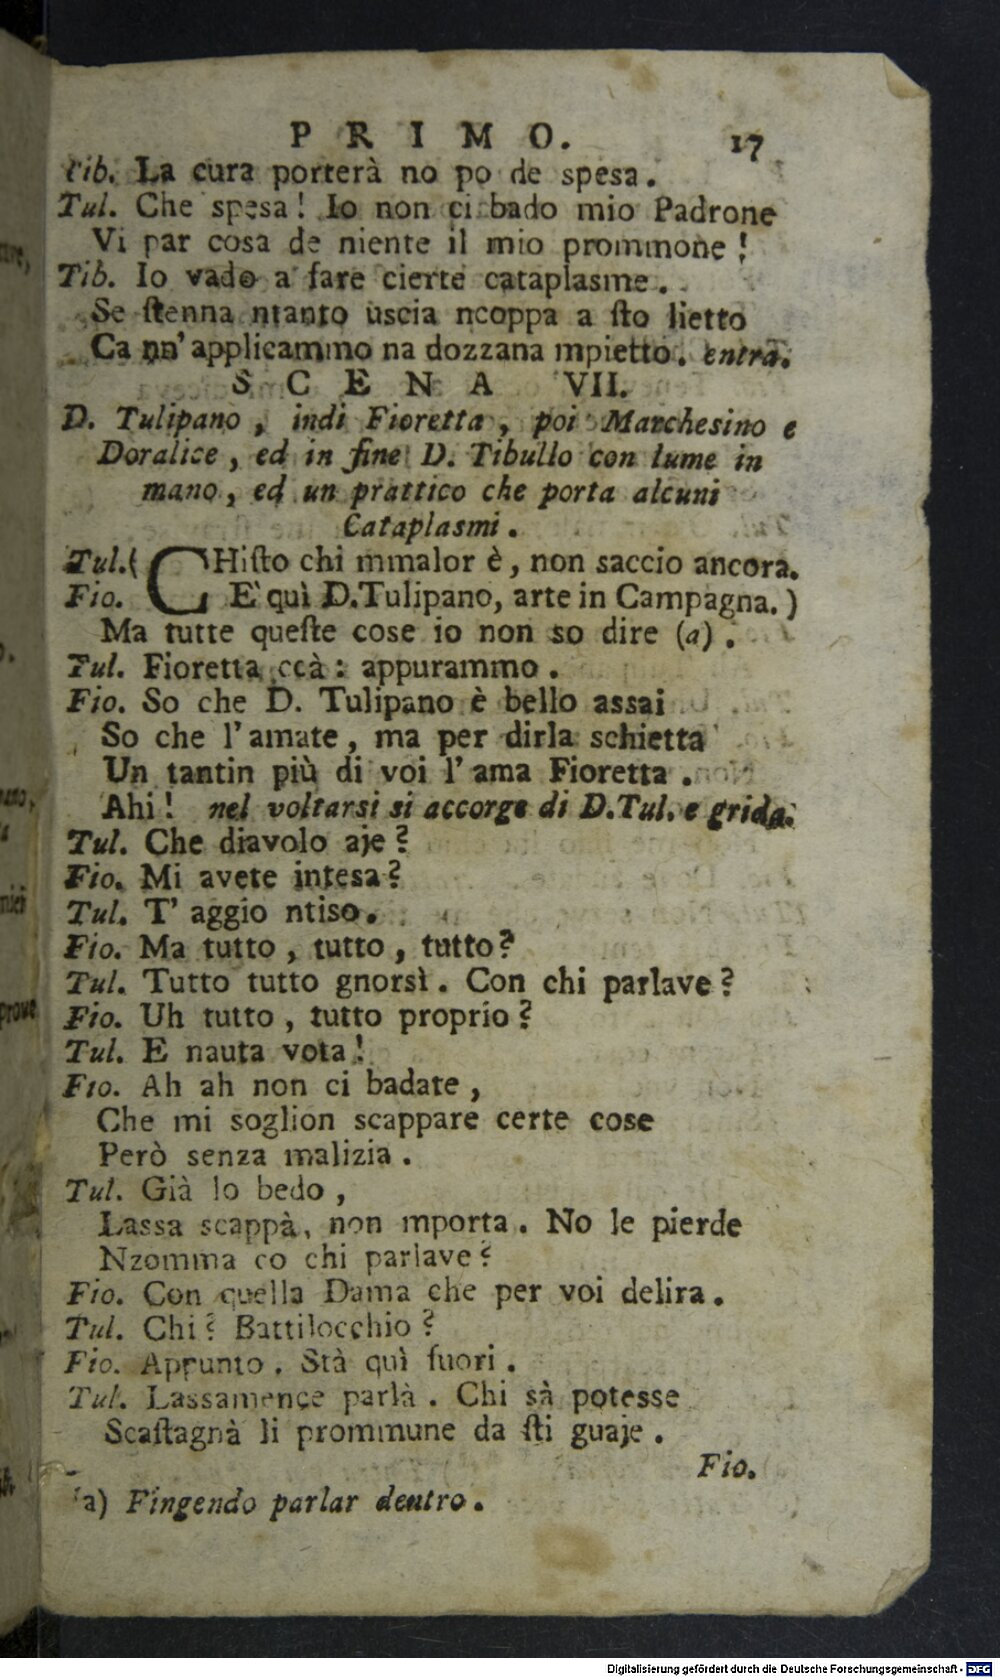 PRIMO. 17
Tib. La cura porterà no po de spesa.
Tul. Che spesa! Io non ci bado mio Padrone
Vi par cosa de niente il mio prommone!
Tib. Io vado a fare cierte cataplasme.
Se ſtenna ntanto uscia ncoppa a ſto lietto
Ca nn'applicammo na dozzana mpietto. entra.
SCENA VII.
D. Tulipano, indi Fioretta, poi Marchesino e
Doralice, ed in fine D. Tibullo con lume in
mano, ed un prattico che porta alcuni
Cataplasmi.
Tul.( CHiſto chi mmalor è, non saccio ancora.
Fio. E' quì D.Tulipano, arte in Campagna.)
Ma tutte queſte cose io non so dire (a).
Tul. Fioretta ccà: appurammo.
Fio. So che D. Tulipano è bello assai
So che l'amate, ma per dirla schietta
Un tantin più di voi l'ama Fioretta.
Ahi! nel voltarsi si accorge di D.Tul. e grida.
Tul. Che diavolo aje?
Fio. Mi avete intesa?
Tul. T' aggio ntiso.
Fio. Ma tutto, tutto, tutto?
Tul. Tutto tutto gnorsì. Con chi parlave?
Fio. Uh tutto, tutto proprio?
Tul. E nauta vota!
Fio. Ah ah non ci badate,
Che mi soglion scappare certe cose
Però senza malizia.
Tul. Già lo bedo,
Lassa scappà, non mporta. No le pierde
Nzomma co chi parlave?
Fio. Con quella Dama che per voi delira.
Tul. Chi? Battilocchio?
Fio. Appunto. Stà quì fuori.
Tul. Lassamence parlà. Chi sà potesse
Scaſtagnà li prommune da ſti guaje.
Fio.
(a) Fingendo parlar dentro.
Digitalisierung gefördert durch die Deutsche Forschungsgemeinschaft - DFG